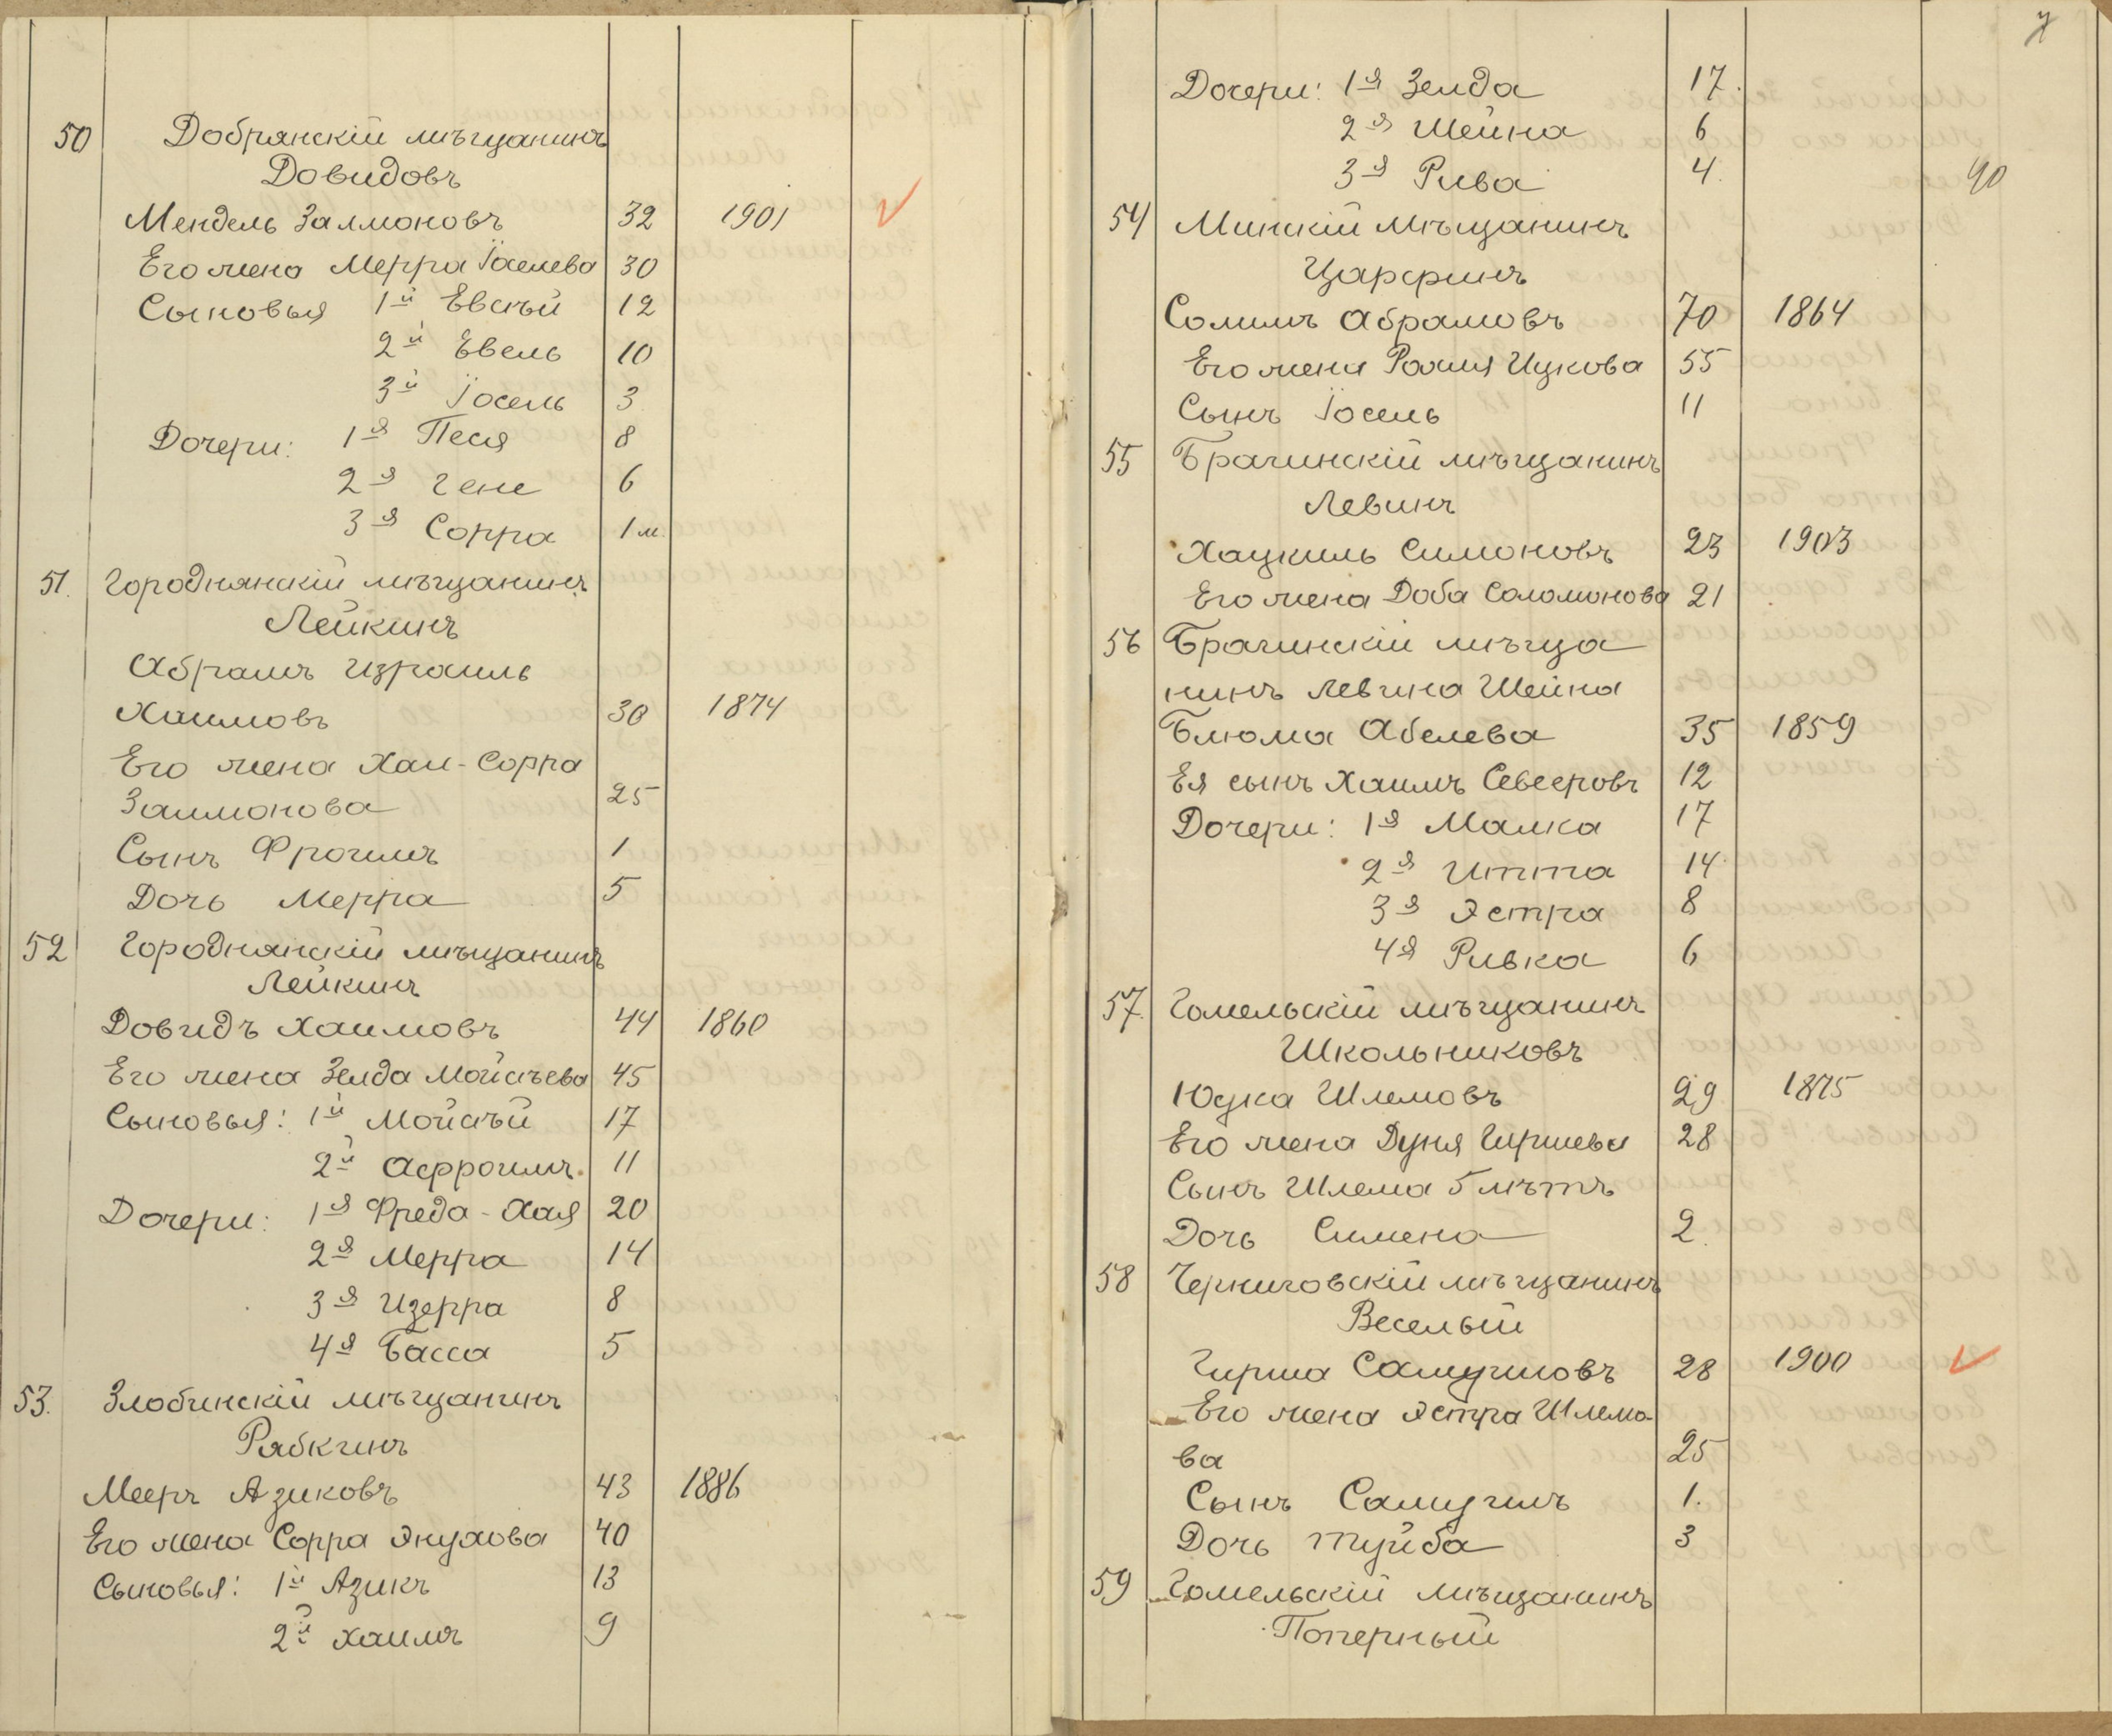 50 Добрянскій мѣщанинъ
Довидовъ
Мендель Залмоновъ 32 1901
Его жена Мерра Іоселева 30
Сыновья 1й Евсѣй 12
2й Евель 10
3й Іосель 3
Дочери: 1я Песя 8
2я Гене 6
3я Сорра 1 м.
51. Городнянскій мѣщанинъ
Лейкинъ
Абрамъ Израиль
Хаимовъ 30 1874
Его жена Хаи-Сорра
Залмонова 25
Сынъ Фроимъ 1
Дочь Мерра 5
52 Городнянскій мѣщанинъ
Лейкинъ
Довидъ Хаимовъ 44 1860
Его жена Зелда Мойсѣева 45
Сыновья: 1й Мойсѣй 17
2й Афроимъ 11
Дочери: 1я Фреда-Хая 20
2я Мерра 14
3я Изерра 8
4я Басса 5
53. Злобинскій мѣщанинъ
Рябкинъ
Мееръ Азиковъ 43 1886
Его жена Сорра Энухова 40
Сыновья: 1й Азикъ 13
2й Хаимъ 9
Дочери: 1я Зелда 17.
2я Шейна 6
3я Рива 4.
90
54 Минскій мѣщанинъ
Царфинъ
Солимъ Абрамовъ 70 1864
Его жена Рохля Ицкова 55
Сынъ Іосель 11
55 Брагинскій мѣщанинъ
Левинъ
Хацкиль Симоновъ 23 1903
Его жена Доба Соломонова 21
56 Брагинскій мѣща
нинъ Левина Шейна
Блюма Абелева 35 1859
Ея сынъ Хаимъ Севееровъ 12
Дочери: 1я Малка 17
2я Итта 14
3я Эстра 8
4я Ривка 6
57. Гомельскій мѣщанинъ
Школьниковъ
Юдка Шлемовъ 29 1875
Его жена Дуня Гиршева 28
Сынъ Шлема 5 лѣтъ
Дочь Симена 2.
58 Черниговскій мѣщанинъ
Веселый
Гирша Самуиловъ 28 1900
Его жена Эстра Шлемо-
ва 25
Сынъ Самуилъ 1.
Дочь Туйба 3
59 Гомельскій мѣщанинъ
Поперный